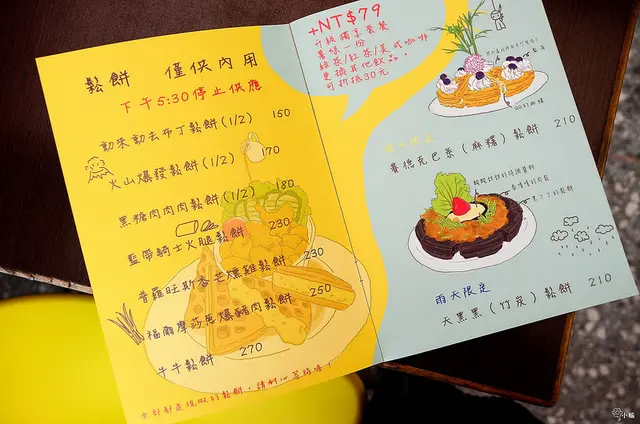 鬆餅 僅供內用
下午5:30停止供應
動來動去布丁鬆餅(1/2) 150
火山爆發鬆餅(1/2) 170
黑糖肉肉肉鬆餅(1/2) 180
藍帶騎士火腿鬆餅 230
普羅旺斯香芒燻雞鬆餅 230
福爾摩莎蔥爆豬肉鬆餅 250
牛牛鬆餅 270
全部都是現做的鬆餅，請耐心等待唷！
+NT$79
升級獨享套餐
薯條一份
綠茶/紅茶/美式咖啡
更換其他飲品，
可折抵30元。
賽德克巴萊（麻糬）鬆餅 210
雨天限定
天黑黑（竹炭）鬆餅 210
小腹